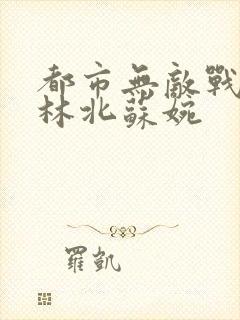 都市無敵戰
林北蘇婉
羅凱